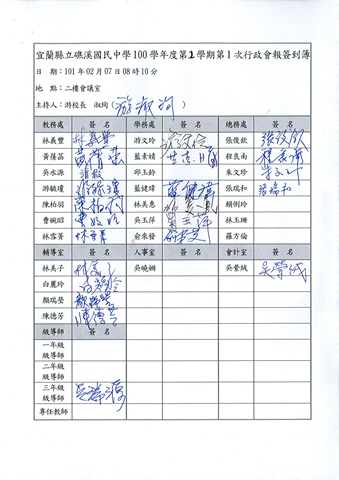 宜蘭縣立礁溪國民中學100學年度第2學期第1次行政會報簽到簿
日 期：101年02月07日08時10分
地 點：二樓會議室
主持人：游校長 淑珣（游淑珣）
教務處 簽 名 學務處 簽 名 總務處 簽 名
林義豐 游文玲 張復欽 張復欽
黃蒨菡 藍素娟 程良南 程良南
吳永源 邱玉鈴 朱文珍
游毓瓊 藍健緯 藍健緯 張瑞和 張瑞和
陳柏羽 林美惠 賴俐玲
曹婉昭 吳玉萍 吳玉萍 林玉珊
林雪菁 俞來發 羅方倫
輔導室 簽 名 人事室 簽 名 會計室 簽 名
林美子 吳曉姍 吳縈絨
白麗玲
顏瑞瑩
陳德芳
級導師 簽 名
一年級
級導師
二年級
級導師
三年級
級導師
專任教師